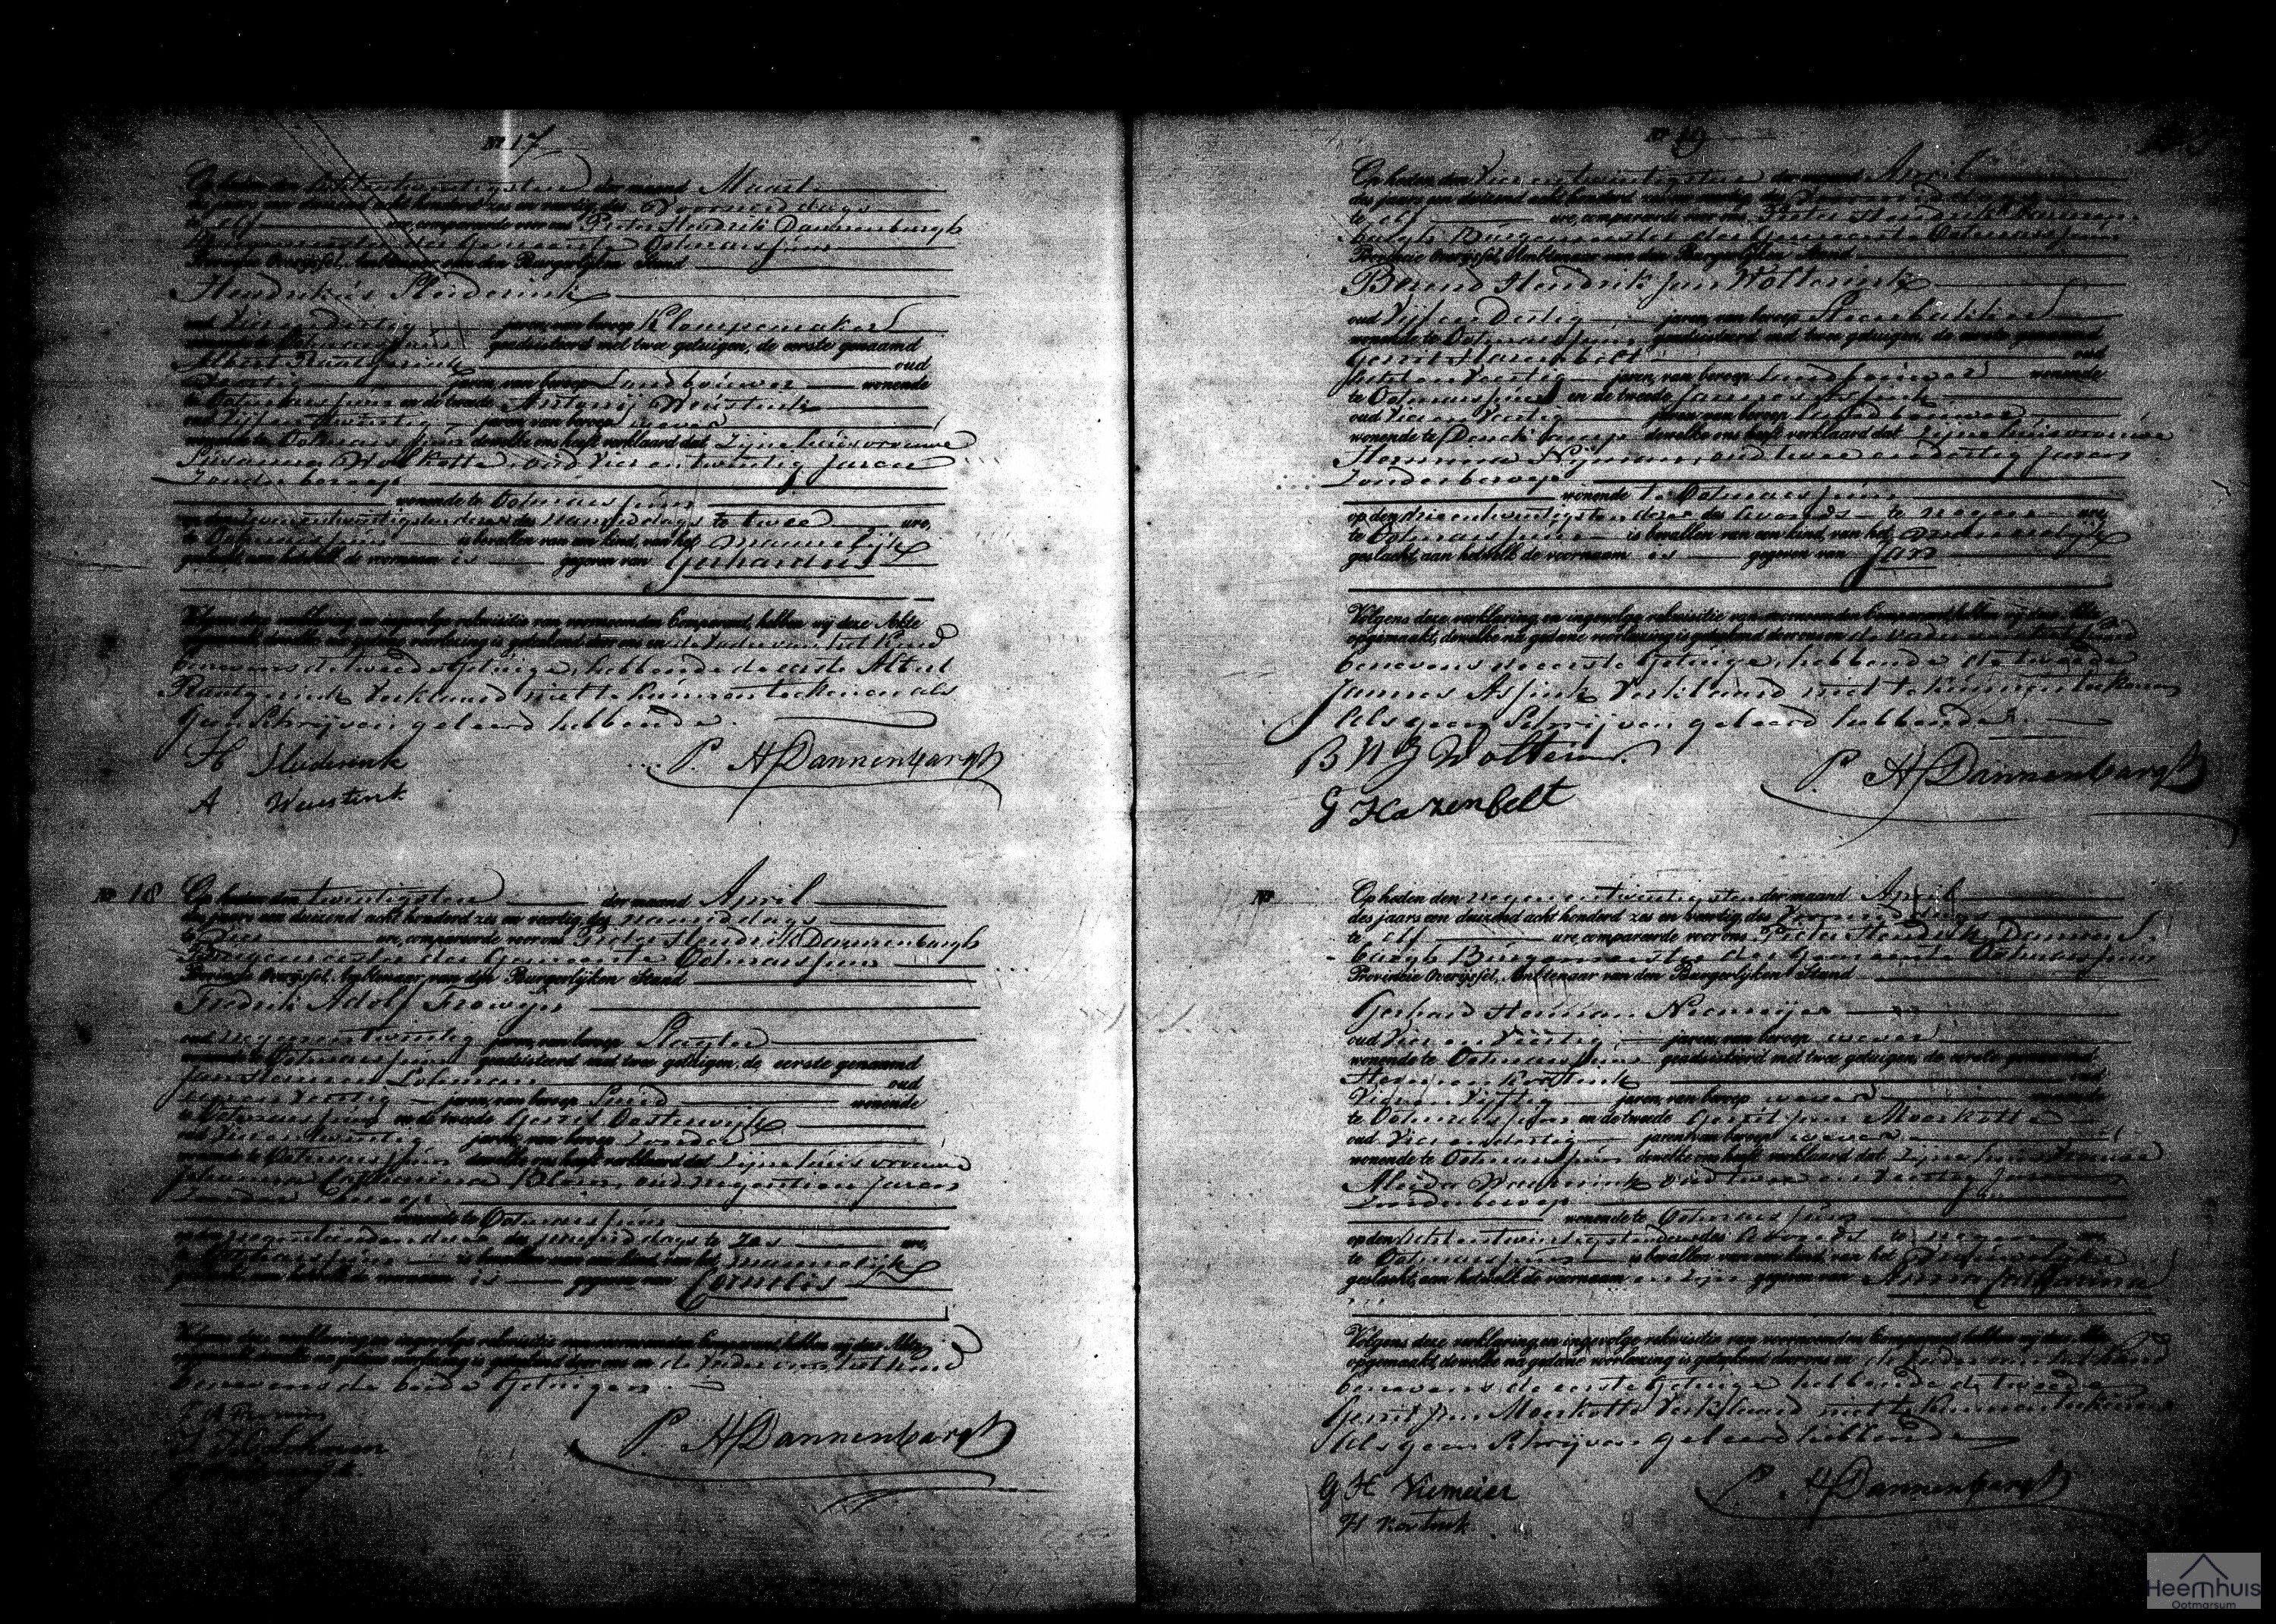 Nº 17
Op heden den achtentwintigsten der maand Maart
des jaars een duizend acht honderd zes en veertig, des Voormiddags
te elf ure, compareerde voor ons Pieter Hendrik Dannenbargh
Burgemeester der Gemeente Ootmarssum
Provincie Overijssel, Ambtenaar van den Burgerlijken Stand
Hendrikus Sleiderink
oud Vier en dertig jaren, van beroep Klompemaker
wonende te Ootmarssum geadsisteerd met twee getuigen, de eerste genaamd
Albert Raatgerink oud
Dertig jaren, van beroep Landbouwer wonende
te Ootmarssum en de tweede Antonij Weustink
oud Vijf en twintig jaren, van beroep wever
wonende te Ootmarssum dewelke ons heeft verklaard dat Zijne huisvrouwe
Susanna Wolkotte oud Vier en twintig Jaren
Zonder beroep
wonende te Ootmarssum
op den Zevenentwintigsten dezer des namiddags te twee ure,
te Ootmarssum is bevallen van een kind, van het mannelijk
geslacht, aan hetwelk de voornaam is gegeven van Gerhardus
Volgens deze verklaring en ingevolge rekwisitie van voornoemden Comparant, hebben wij deze Akte
opgemaakt, dewelke na gedane voorlezing is geteekend door ons en de Vader van het Kind
benevens de tweede Getuige, hebbende de eerste Albert
Raatgerink Verklaard niet te kunnen teekenen als
Geen Schrijven geleerd hebbende.
H Sleiderink P. H Dannenbargh
A Weustink
Nº 18 Op heden den twintigsten der maand April
des jaars een duizend acht honderd zes en veertig, des namiddags
te Vier ure, compareerde voor ons Pieter Hendrik Dannenbargh
Burgemeester der Gemeente Ootmarssum
Provincie Overijssel, Ambtenaar van den Burgerlijken Stand
Fredrik Adolf Frowijn
oud negenentwintig jaren, van beroep Slagter
wonende te Ootmarssum geadsisteerd met twee getuigen, de eerste genaamd
Jan Herman Lohman oud
een en Veertig jaren, van beroep wonende
te Ootmarssum en de tweede Gerrit Oosterwijk
oud Vier en Twintig jaren, van beroep Zonder
wonende te Ootmarssum dewelke ons heeft verklaard dat Zijne huisvrouwe
Johanna Catharina Blom, oud negentien Jaren
Zonder beroep
wonende te Ootmarssum
op den negentienden dezer des namiddags te zes ure,
te Ootmarssum is bevallen van een kind, van het mannelijk
geslacht, aan hetwelk de voornaam is gegeven van Cornelis
Volgens deze verklaring en ingevolge rekwisitie van voornoemden Comparant, hebben wij deze Akte
opgemaakt, dewelke na gedane voorlezing is geteekend door ons en de Vader van het kind
benevens de beide Getuigen.
J H Lohman P. H Dannenbargh
Nº 19
Op heden den Vierentwintigsten der maand April
des jaars een duizend acht honderd zes en veertig, des Voormiddags
te elf ure, compareerde voor ons Pieter Hendrik Dannen-
bargh Burgemeester der Gemeente Ootmarssum
Provincie Overijssel, Ambtenaar van den Burgerlijken Stand
Berend Hendrik Jan Wolterink
oud Vijf en Dertig jaren, van beroep Steenbakker
wonende te Ootmarssum geadsisteerd met twee getuigen, de eerste genaamd
Gerrit Hazenbelt oud
jaren, van beroep Landbouwer wonende
te Ootmarssum en de tweede Jannes Assink
oud Vier en Veertig jaren, van beroep Landbouwer
wonende te dewelke ons heeft verklaard dat Zijne huisvrouwe
Hermina Nijman, oud twee en dertig Jaren
Zonder beroep
wonende te Ootmarssum
op den drieentwintigsten dezer des Avonds te negen ure,
te Ootmarssum is bevallen van een kind, van het mannelijk
geslacht, aan hetwelk de voornaam is gegeven van Jan
Volgens deze verklaring en ingevolge rekwisitie van voornoemden Comparant, hebben wij deze Akte
opgemaakt, dewelke na gedane voorlezing is geteekend door ons en de vader van het kind
benevens de eerste Getuige, hebbende de tweede
Jannes Assink Verklaard niet te kunnen teekenen
Als geen Schrijven geleerd hebbende.
B H J Wolterin P. H Dannenbargh
G Hazenbelt
Nº Op heden den negenentwintigsten der maand April
des jaars een duizend acht honderd zes en veertig, des Voormiddags
te elf ure, compareerde voor ons Pieter Hendrik Dannen-
bargh Burgemeester der Gemeente Ootmarssum
Provincie Overijssel, Ambtenaar van den Burgerlijken Stand
Gerhard Herman Niemeijer
oud Vier en Veertig jaren, van beroep wever
wonende te Ootmarssum geadsisteerd met twee getuigen, de eerste genaamd
Herman Kortink oud
jaren, van beroep wever wonende
te Ootmarssum en de tweede Gerrit Jan Moerkotte
oud Vier en dertig jaren, van beroep wever
wonende te Ootmarssum dewelke ons heeft verklaard dat Zijne huisvrouwe
Aleida oud twee en Veertig Jaren
Zonder beroep
wonende te Ootmarssum
op den Achtentwintigsten dezer des Avonds te negen ure,
te Ootmarssum is bevallen van een kind, van het Vrouwelijke
geslacht, aan hetwelk de voornaam en zijn gegeven van Anna Catharina
Volgens deze verklaring en ingevolge rekwisitie van voornoemden Comparant, hebben wij deze Akte
opgemaakt, dewelke na gedane voorlezing is geteekend door ons en de Vader van het kind
benevens de eerste Getuige hebbende de tweede
Gerrit Jan Moerkotte Verklaard niet te kunnen teekenen
Als geen Schrijven geleerd hebbende
G H Niemeier P. H Dannenbargh
H Kortink
Heemhuis
Ootmarsum